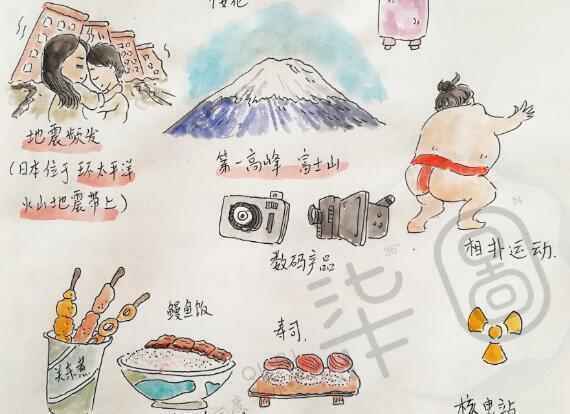 樱花
地震频发
(日本位于环太平洋
火山地震带上)
第一高峰 富士山
数码产品
相扑运动.
36°
N
柒
圖
关东煮
鳗鱼饭
寿司.
核电站